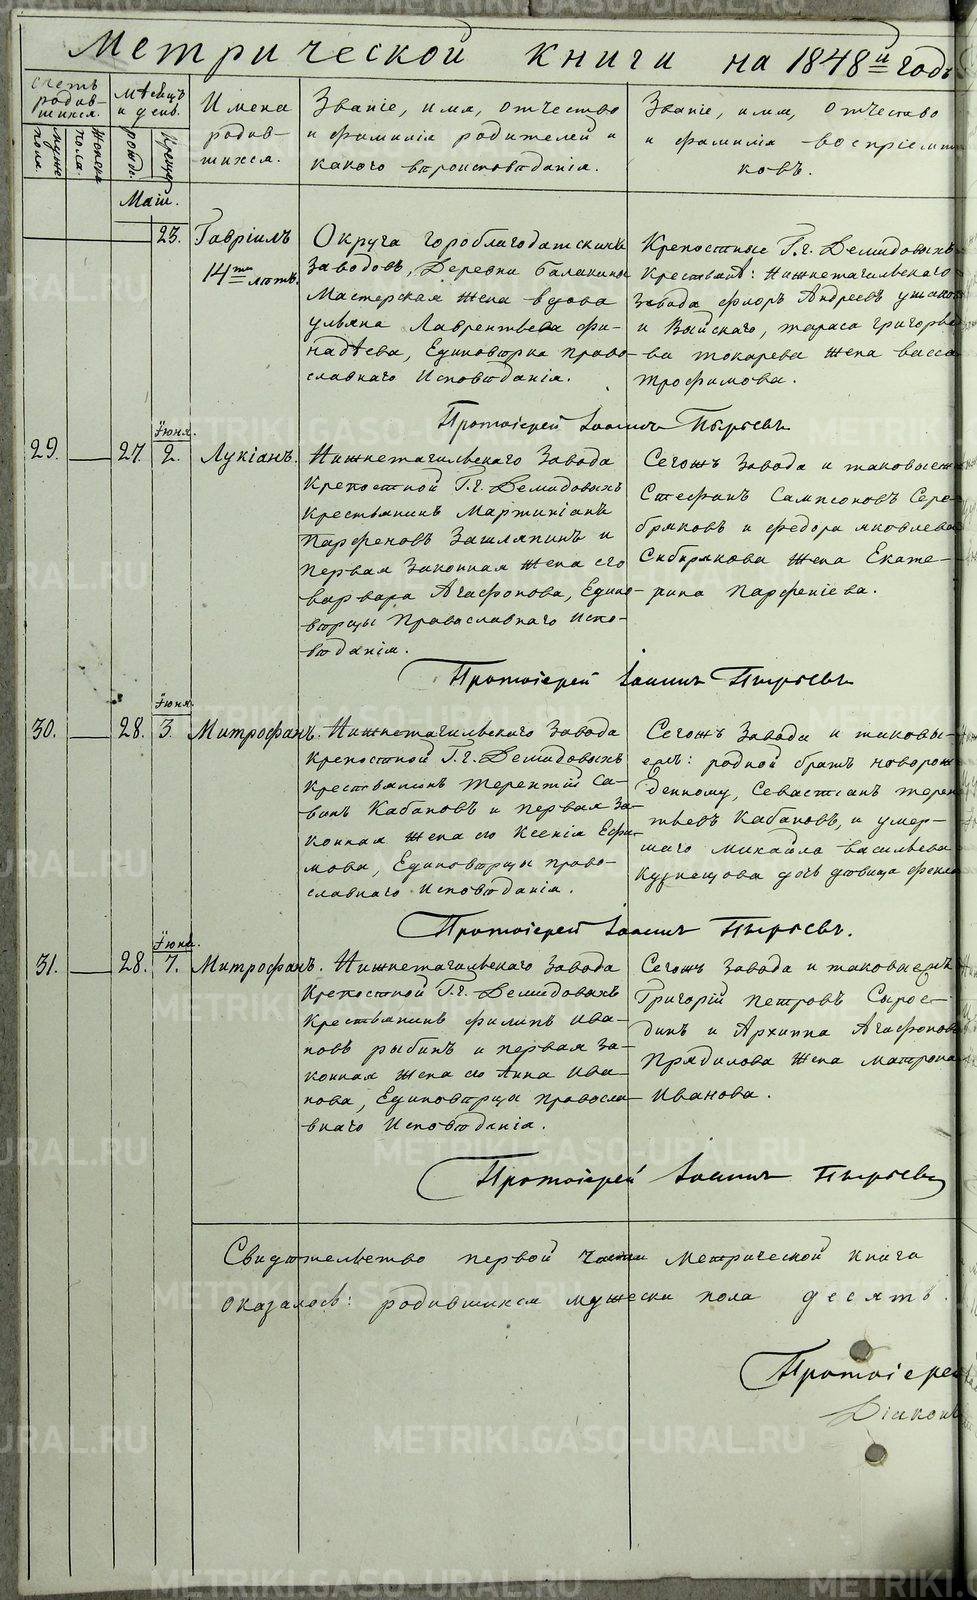 Метрической книги на 1848й годъ
Счетъ родив-
шихся.
Мужеска
пола.
Женска
пола.
Мѣсяцъ
и день.
рожде.
Крещ.
Имена
родив-
шихся.
Званіе, имя, отчество
и фамилія родителей и
какого вѣроисповѣданія.
Званіе, имя, отчество
и фамилія воспріемни
ковъ.
Маія.
23. Гавріилъ
14ти лѣтъ.
Округа Гороблагодатскихъ
заводовъ, Деревни Балакиной
Мастерская жена вдова
Ульяна Лаврентьева
надѣева, Единовѣрка право-
славнаго Исповѣданія.
Крепостные Г.г. Демидовыхъ
Крестьяне: Нижнетагильскаго
завода Флоръ Андреевъ
и Выйскаго, Тараса Григорье
ва Токарева жена Васса
Трофимова.
Протоіерей Іоаннъ Пырьевъ
29. 27. Іюня. 2. Лукіанъ.
Нижнетагильскаго Завода
Крепостной Г.г. Демидовыхъ
Крестьянинъ Мартиніанъ
Парфеновъ Зашляпинъ и
первая Законная жена его
Варвара Агафонова, Едино-
вѣрцы Православнаго Испо-
вѣданія.
Сегожъ Завода и таковыежъ
Стефанъ Сампсоновъ Сере-
бряковъ и Федора Яковлева
Сибирякова жена Екате-
рина Парфеніева.
Протоіерей Іоаннъ Пырьевъ
30. 28. Іюня. 3. Митрофанъ.
Нижнетагильскаго Завода
Крепостной Г.г. Демидовыхъ
Крестьянинъ Терентій Са-
винъ Кабановъ и первая За-
конная жена его Ксенія Ефи-
мова, Единовѣрцы право-
славнаго Исповѣданія.
Сегожъ Завода и таковы-
ежъ: родной братъ новорож
денному, Севастіанъ Терен
тьевъ Кабановъ, и умер-
шаго Михайла Васильева
Кузнецова дочь дѣвица Фекла
Протоіерей Іоаннъ Пырьевъ.
31. 28. Іюня. 7. Митрофанъ.
Нижнетагильскаго Завода
Крепостной Г.г. Демидовыхъ
Крестьянинъ Филипъ Ива-
новъ Рыбинъ и первая За-
конная жена его Анна Ива-
нова, Единовѣрцы правосла-
внаго Исповѣданія.
Сегожъ Завода и таковыежъ
Григорій Петровъ Сырое-
динъ и Архиппа Агафонова
Прядилова жена Матрона
Иванова.
Протоіерей Іоаннъ Пырьевъ
Свидѣтельство первой части Метрической книги
оказалось: родившихся мужеска пола десять.
Протоіерей
Діаконъ
METRIKI.GASO-URAL.RU